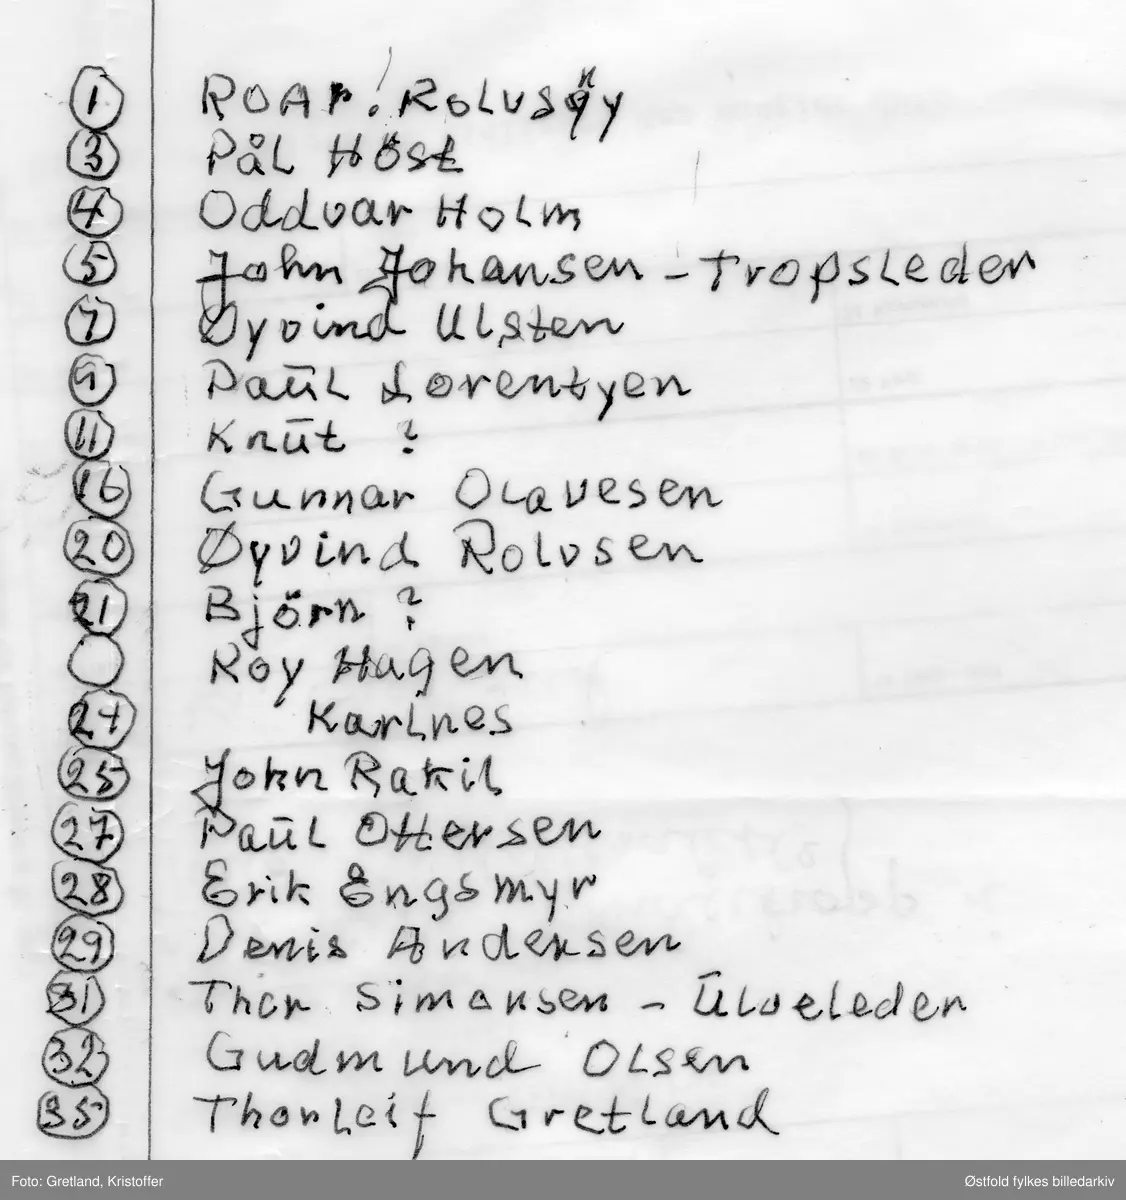 1 ROAr. Rolvsöy
3 Pål Höst
4 Oddvar Holm
5 John Johansen - Tropsleder
7 Øyvind Ulsten
9 Paūl Lorentyen
11 Knūt ?
16 Gunnar Olavesen
20 Øyvind Rolvsen
21 Björn ?
Roy Hagen
24 Karlnes
25 John Rakil
27 Paūl Ottersen
28 Erik Engsmyr
29 Denis Andersen
31 Thor Simonsen - Ūlveleder
32 Gudmund Olsen
35 Thorleif Gretland
Foto: Gretland, Kristoffer
Østfold fylkes billedarkiv